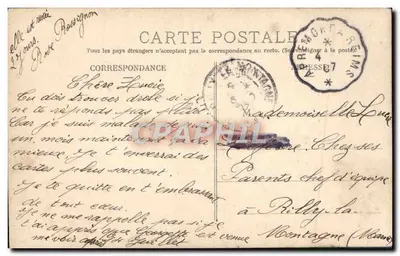 elle est
CARTE POSTALE
Tous les pays étrangers n'acceptent pas la correspondance au recto. (Se renseigner à la poste)
CORRESPONDANCE
APREMONT A REIMS
4
07
MONTAGNE
Chère Lucie
Tu dois trouver drôle si je
ne te réponds pas plus
car je suis malade
un mois maintenant
mieux. Je t'enverrai des
cartes plus souvent.
Je te quitte en t'embrassant
de tout cœur.
Je ne me rappelle pas si je
t'ai appris que Georgette est venue
me voir
Mademoiselle Lucie
Chez ses
Parents chef d'équipe
à Rilly-la-
Montagne (Marne)